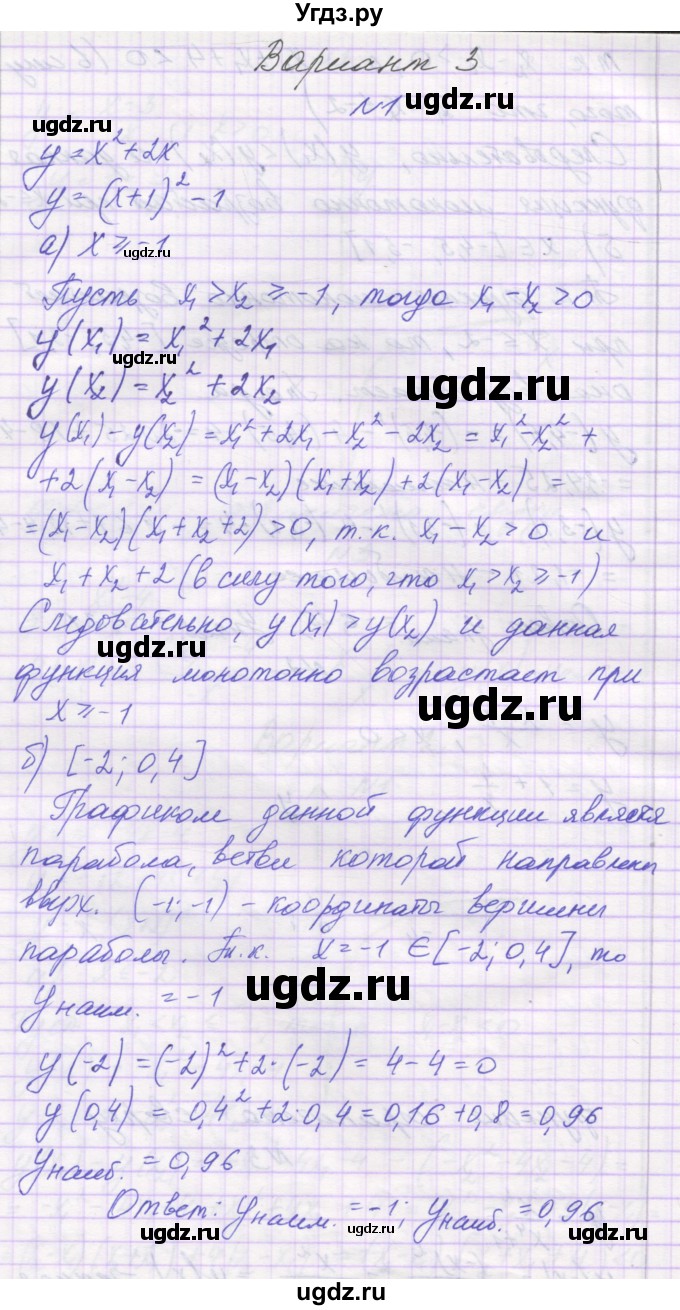 Угдз.ру
Вариант 3
№1
ugdz.ru
ugdz.ru
y=x²+2x
y=(x+1)²-1
ugdz.ru
а) x⩾-1
Пусть x₁>x₂⩾-1, тогда x₁-x₂>0
y(x₁)=x₁²+2x₁
ugdz.ru
y(x₂)=x₂²+2x₂
ugdz.ru
y(x₁)-y(x₂)=x₁²+2x₁-x₂²-2x₂=x₁²-x₂²+
+2(x₁-x₂)=(x₁-x₂)(x₁+x₂)+2(x₁-x₂)=
=(x₁-x₂)(x₁+x₂+2)>0, т.к. x₁-x₂>0 и
x₁+x₂+2(в силу того, что x₁>x₂⩾-1)
Следовательно, y(x₁)>y(x₂) и данная
ugdz.ru
функция монотонно возрастает при
ugdz.ru
x⩾-1
б) [-2;0,4]
Графиком данной функции является
парабола, ветви которой направлены
вверх. (-1;-1) - координаты вершины
параболы. Т.к. x=-1 ∈[-2;0,4], то
ugdz.ru
yнаим.=-1
y(-2)=(-2)²+2·(-2)=4-4=0
y(0,4)=0,4²+2·0,4=0,16+0,8=0,96
yнаиб.=0,96
Ответ: yнаим.=-1; yнаиб.=0,96
ugdz.ru
ugdz.ru
ugdz.ru
ugdz.ru